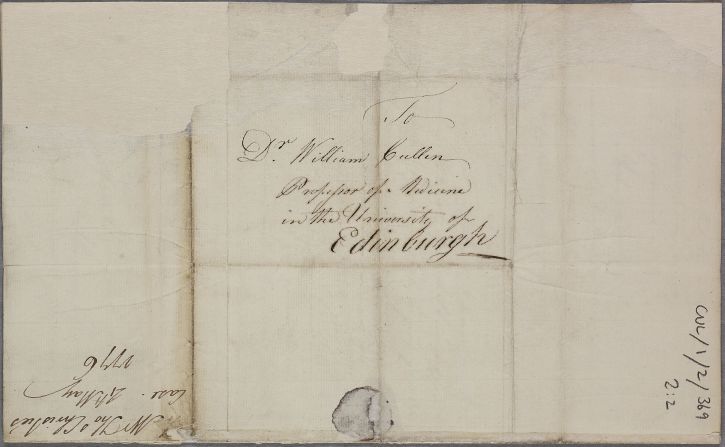 To
Dr. William Cullen
Professor of Medicine
in the University of
Edinburgh
Mr. Thos. Christie's
Case. May
1776
CUL/1/2/369
2:2